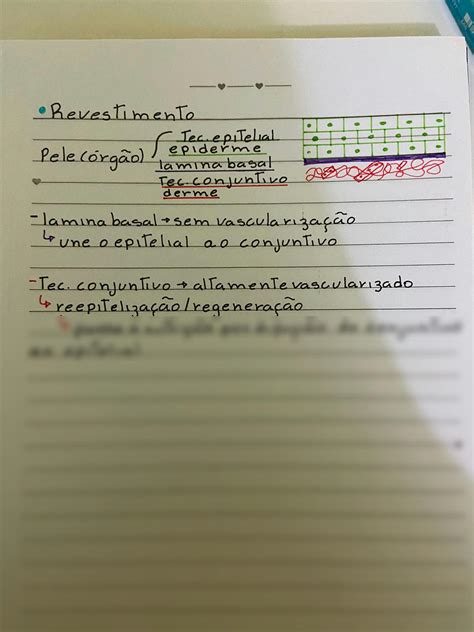 • Revestimento
Tec. epitelial
epiderme
Pele (órgão)
lamina basal
Tec. conjuntivo
derme
- lamina basal → sem vascularização
↳ une o epitelial ao conjuntivo
- Tec. conjuntivo → altamente vascularizado
↳ reepitelização/regeneração